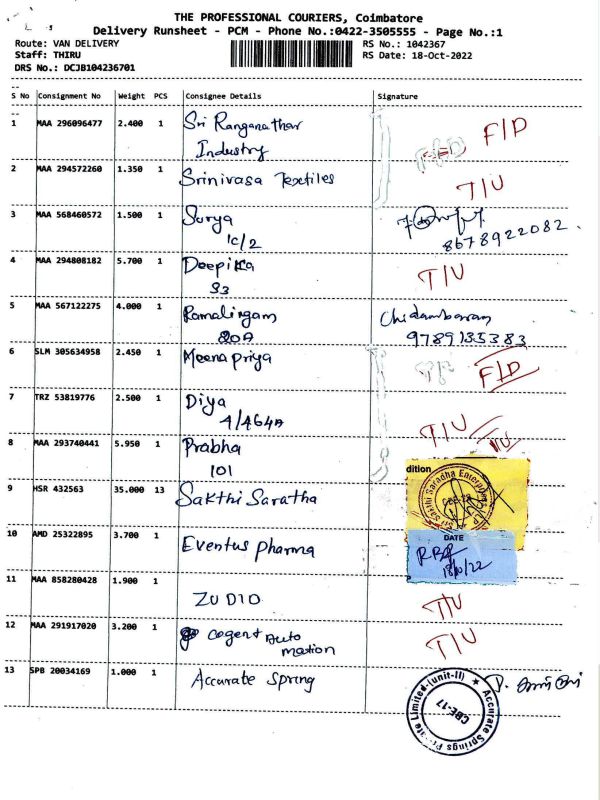 THE PROFESSIONAL COURIERS, Coimbatore
Delivery Runsheet - PCM - Phone No.:0422-3505555 - Page No.:1
Route: VAN DELIVERY RS No.: 1042367
Staff: THIRU RS Date: 18-Oct-2022
DRS No.: DCJB104236701
S No Consignment No Weight PCS Consignee Details Signature
1 MAA 296096477 2.400 1 Sri Ranganathar F/D
Industry
2 MAA 294572260 1.350 1 Srinivasa Textiles T/U
3 MAA 568460572 1.500 1 Surya
1C/2 8678922082
4 MAA 294808182 5.700 1 Deepika T/U
S3
5 MAA 567122275 4.000 1 Ramalingam Chidambaram
20A 9789135383
6 SLM 305634958 2.450 1 Meena priya F/D
7 TRZ 53819776 2.500 1 Diya T/U T/U
4/464A
8 MAA 293740441 5.950 1 Prabha
101
dition
9 HSR 432563 35.000 13 Sakthi Saratha
Sri Sakthi Saradha Enterprises
CBE-28
10 AMD 25322895 3.700 1 Eventus pharma
DATE
18/10/22
11 MAA 858280428 1.900 1 ZUDIO T/U
12 MAA 291917020 3.200 1 cogent Auto T/U
mation
13 SPB 20034169 1.000 1 Accurate Spring
Accurate Springs Private Limited-(unit-II)
CBE-17